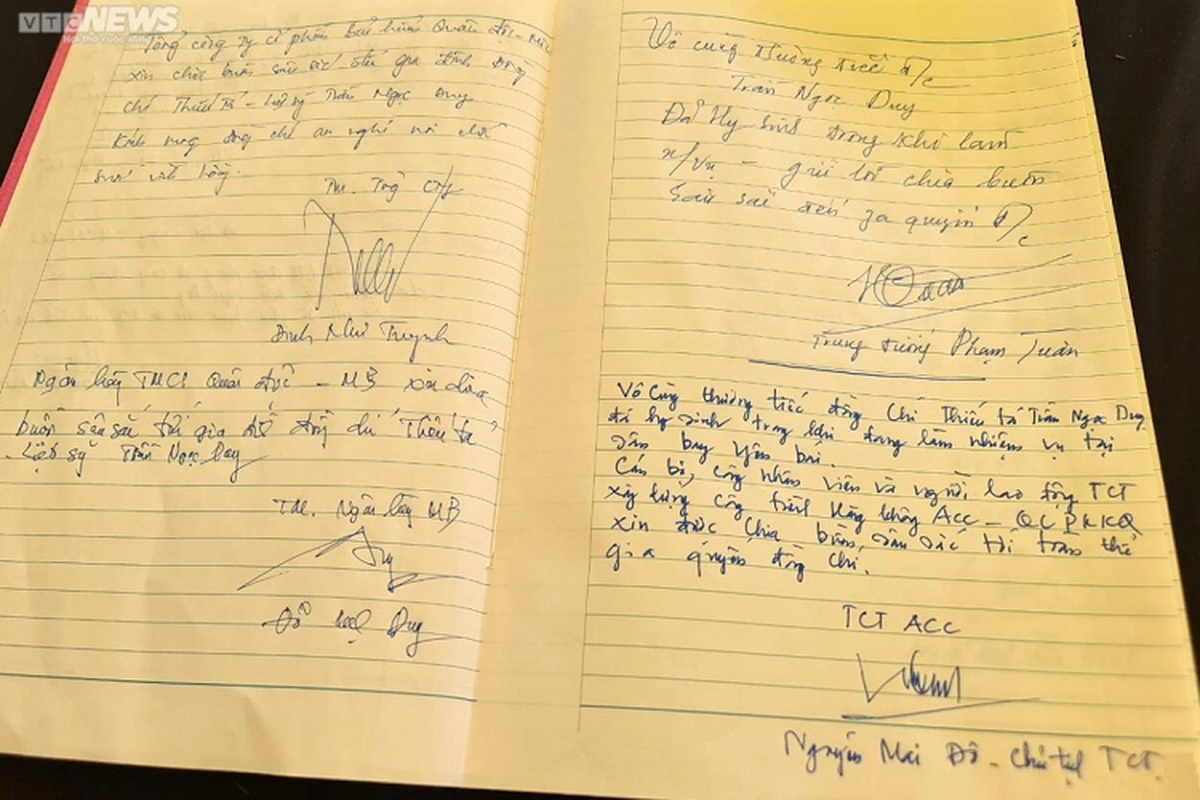 VTC NEWS
Tổng công ty cổ phần bảo hiểm Quân đội - MIC
xin chia buồn sâu sắc đến gia đình đồng
chí Thiếu tá - Liệt sỹ Trần Ngọc Duy
Kính mong đồng chí an nghỉ nơi chốn
vĩnh hằng.
TM. Tổng Cty
Đinh Như Tuynh
Ngân hàng TMCP Quân đội - MB xin chia
buồn sâu sắc tới gia đồng chí Thiếu tá
Liệt sỹ Trần Ngọc Duy
TM. Ngân hàng MB
Duy
Vô cùng thương tiếc đ/c
Trần Ngọc Duy
Đã Hy sinh trong khi làm
n/vụ - gửi lời chia buồn
Sâu sắc đến gia quyến đ/c
Trung tướng Phạm Tuân
Vô Cùng thương tiếc đồng Chí Thiếu tá Trần Ngọc Duy
đã hy sinh trong khi đang làm nhiệm vụ tại
sân bay Yên Bái.
Cán bộ, công nhân viên và người lao động TCT
xây dựng công trình Hàng không ACC - QCPKKQ
xin được chia buồn sâu sắc tới toàn thể
gia quyến đồng Chí.
TCT ACC
Nguyễn Mai Đô - Chủ tịch TCT.